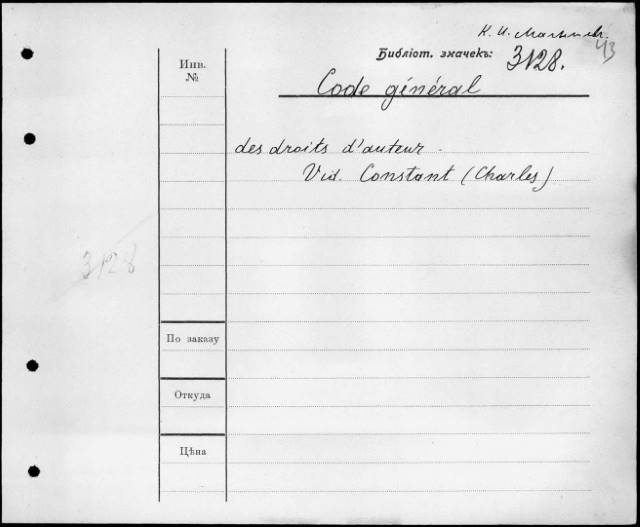 К. И.
43
Инв.
№
Библіот. значекъ: 3128.
Code général
des droits d'auteur.
Vid. Constant (Charles)
3128
По заказу
Откуда
Цѣна